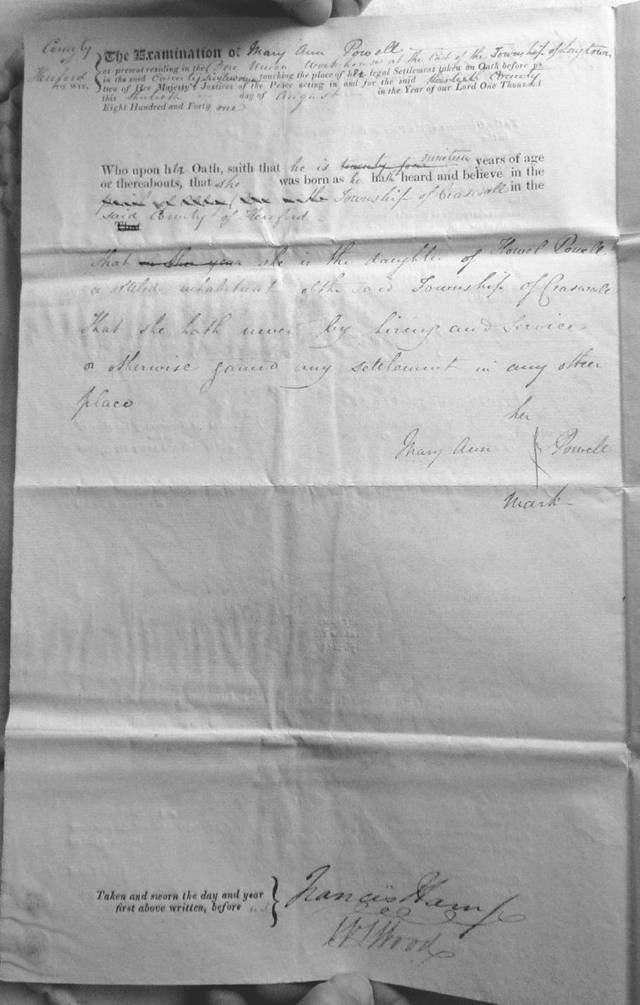 County
of
Hereford
TO WIT,
The Examination of Mary Ann Powell
at present residing in the Dore Union Workhouse at the Cost of the Township of Longtown
in the said County Singlewoman touching the place of her legal Settlement taken on Oath before
two of Her Majesty's Justices of the Peace acting in and for the said County
this day of August in the Year of our Lord One Thousand
Eight Hundred and Forty one
Who upon her Oath, saith that he is twenty four nineteen years of age
or thereabouts, that she was born as he hath heard and believe in the
in the Township of Craswall in the
said County of Hereford
That in the year she is the daughter of Howel Powell
a settled inhabitant of the said Township of Craswall
That she hath never by hiring and Service
or otherwise gained any settlement in any other
place
her
Mary Ann Powell
Mark
Taken and sworn the day and year
first above written, before us
Francis Ham
Wood